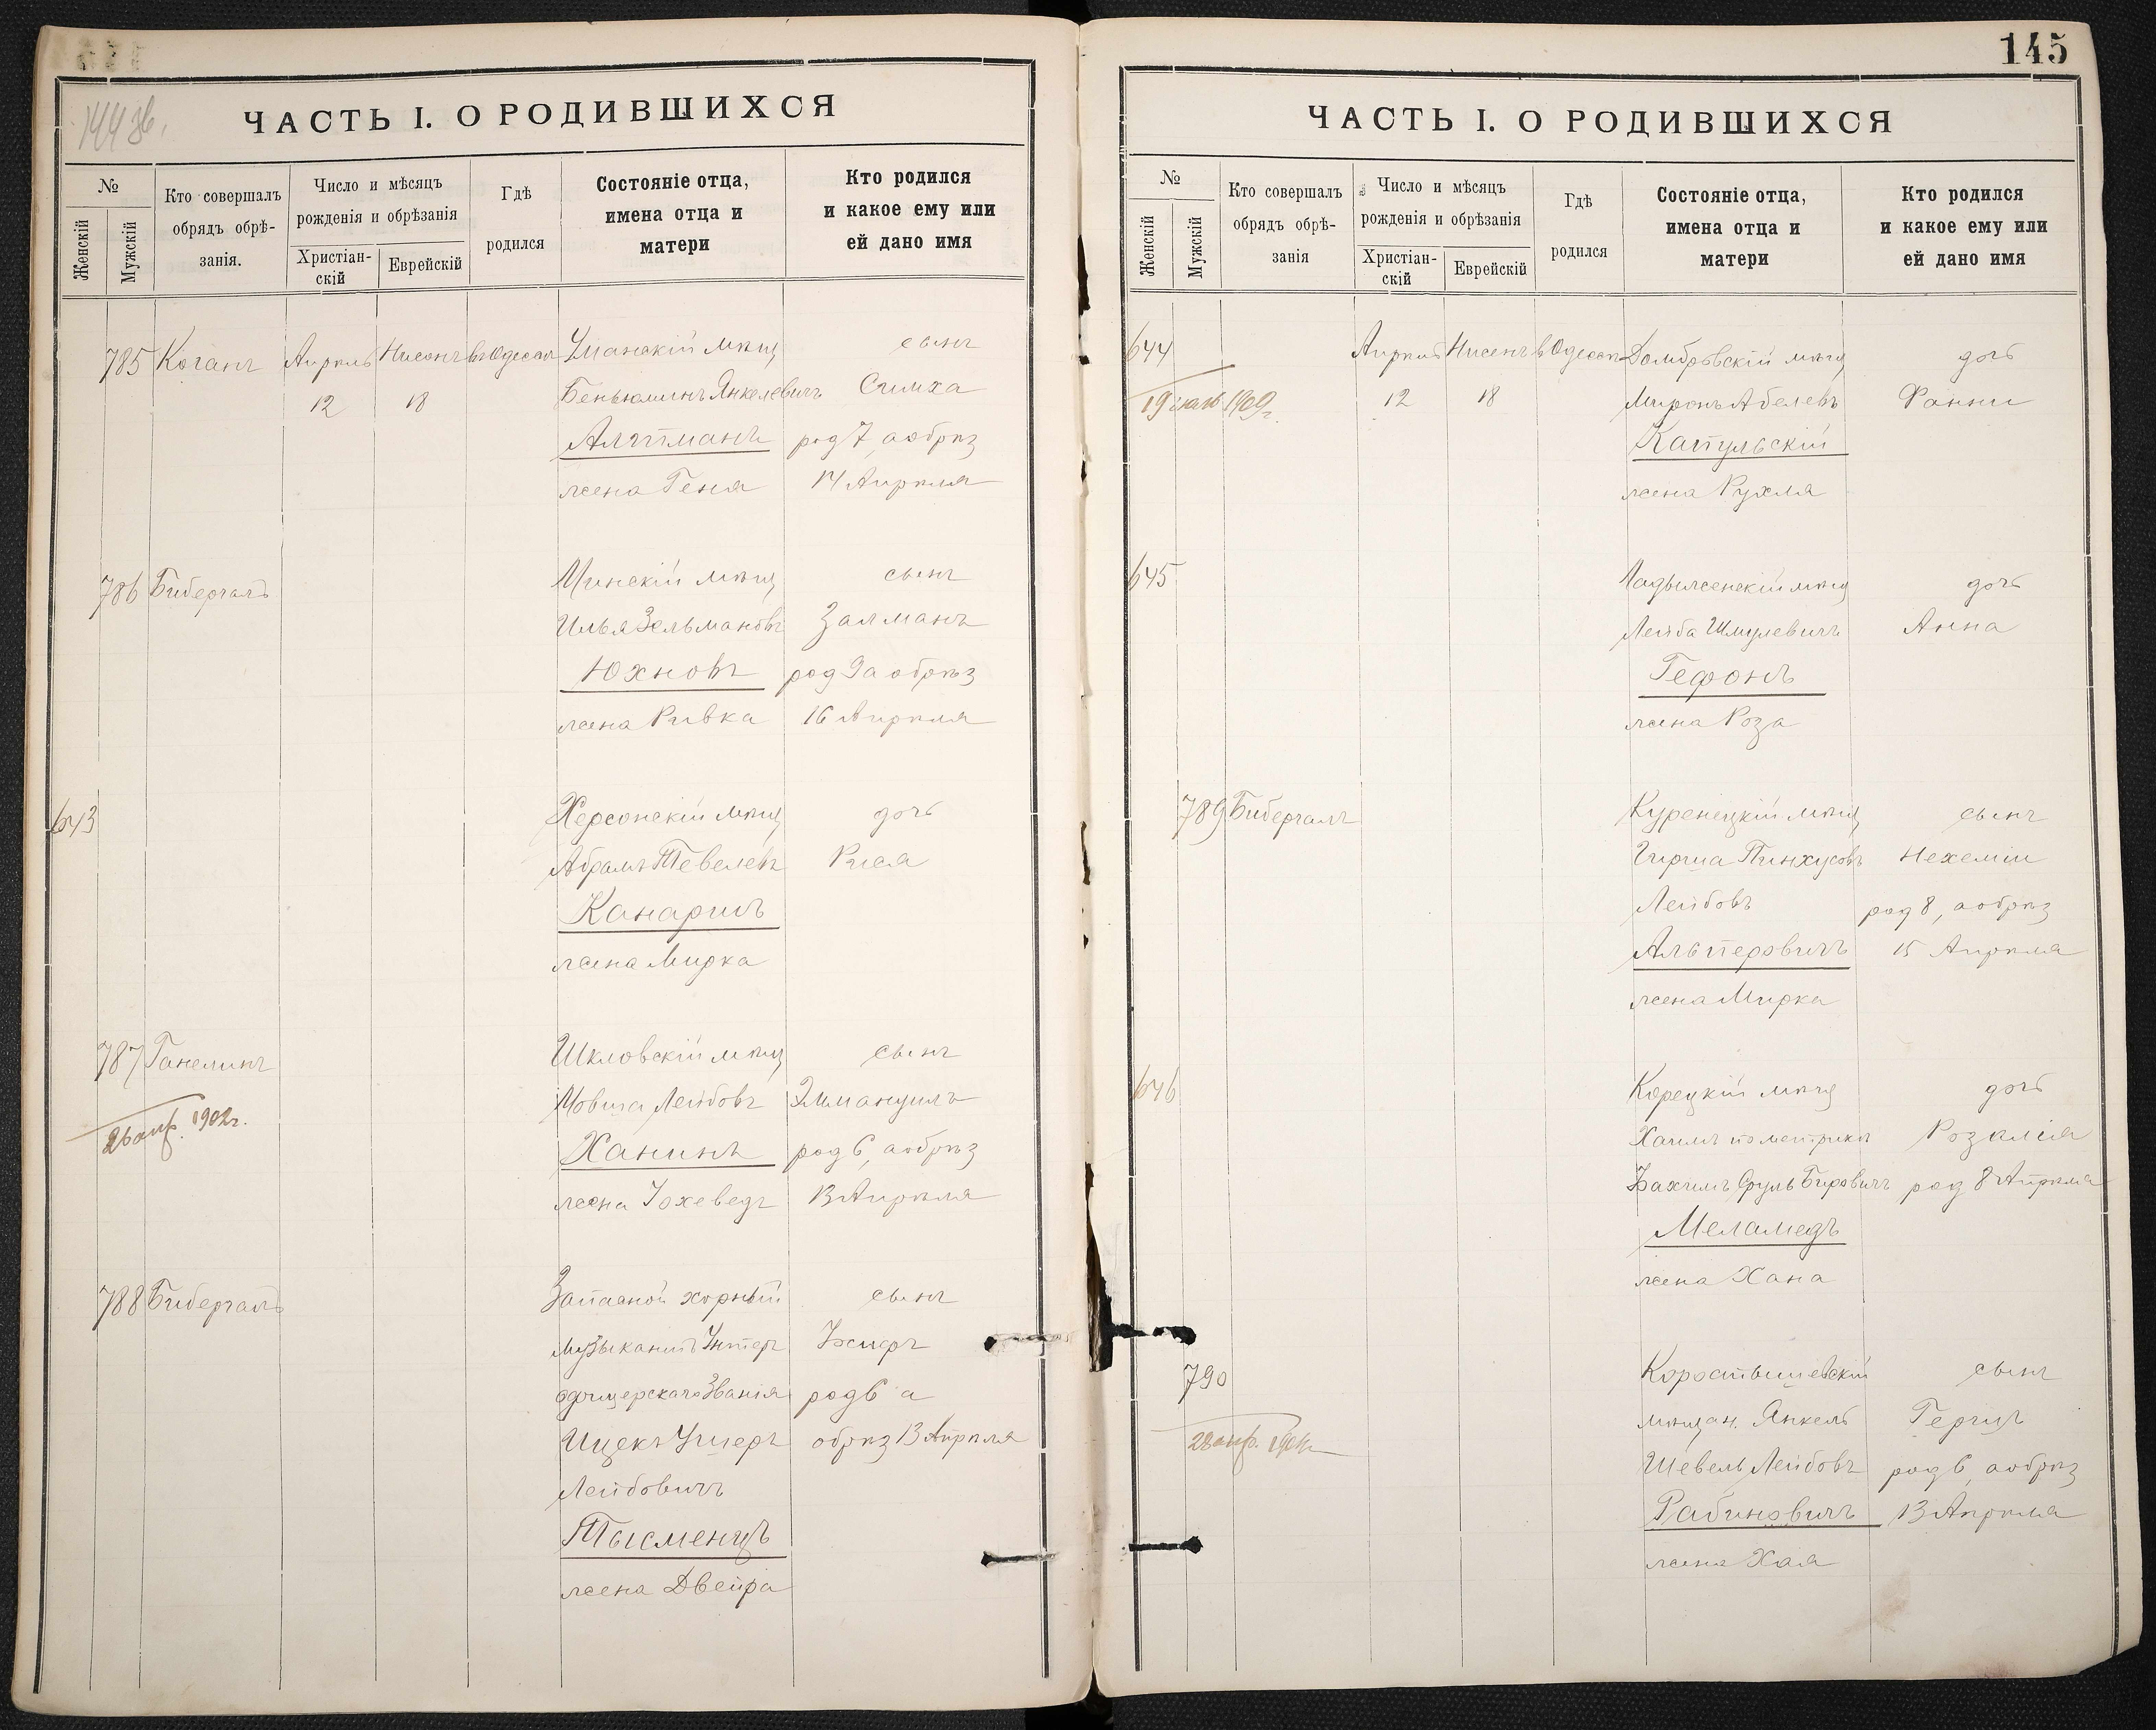 144 об.
ЧАСТЬ I. О РОДИВШИХСЯ
№
Женскій
Мужскій
Кто совершалъ
обрядъ обрѣ-
занія.
Число и мѣсяцъ
рожденія и обрѣзанія
Христіан-
скій
Еврейскій
Гдѣ
родился
Состояніе отца,
имена отца и
матери
Кто родился
и какое ему или
ей дано имя
785 Коганъ Апрель Нисонъ въ Одессе Уманскій мѣщ сынъ
12 18 Беньюминъ Янкелевичъ Симха
Алтманъ род 7, а обрѣз
жена Геня 14 Апреля
786 Бибергалъ Минскій мѣщ сынъ
Илья Зельмановъ Залманъ
Юхновъ род 9 а обрѣз
жена Ривка 16 Апреля
643 Херсонскій мѣщ дочь
Абрамъ Тевелевъ Рися
Канаричъ
жена Мирка
787 Ганелинъ Шкловскій мѣщ сынъ
26 апр. 1902г. Мовша Лейбовъ Эммануилъ
Ханинъ род 6, а обрѣз
жена Іохеведъ 13 Апреля
788 Бибергалъ Запасной хорный сынъ
музыкантъ Унтеръ
офицерскаго званія род 6 а
Ицекъ Ушеръ обрѣз 13 Апреля
Лейбовичъ
Тысменицъ
жена Двейра
145
ЧАСТЬ I. О РОДИВШИХСЯ
№
Женскій
Мужскій
Кто совершалъ
обрядъ обрѣ-
занія
Число и мѣсяцъ
рожденія и обрѣзанія
Христіан-
скій
Еврейскій
Гдѣ
родился
Состояніе отца,
имена отца и
матери
Кто родился
и какое ему или
ей дано имя
644 Апрель Нисенъ в Одессе Домбровскій мѣщ дочь
1909г. 12 18 Миронъ Абелевъ Фанни
Капульскій
жена Рухля
645 Ладыженскій мѣщ дочь
Лейба Шмулевичъ Анна
Гефонъ
жена Роза
789 Бибергалъ Куренецкій мѣщ сынъ
Гирша Пинхусовъ Нехеміи
Лейбовъ род 8, а обрѣз
Альперовичъ 15 Апреля
жена Мирка
646 Корецкій мѣщ дочь
Хаимъ по метрике Розалія
Сруль Беровичъ род 8 Апреля
Меламедъ
жена Хана
790 Коростышевскій сынъ
мѣщан. Янкель Герцъ
28 апр. Шевель Лейбовъ род 6, а обрѣз
Рабиновичъ 13 Апреля
жена Хая